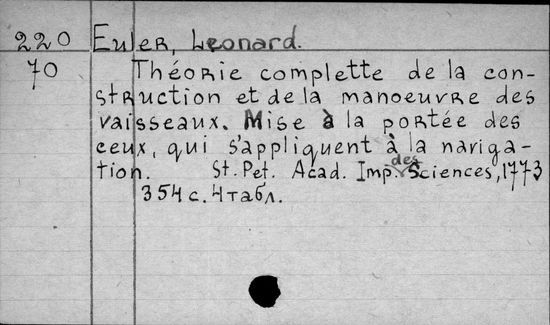 220 Euler, Leonard.
70 Théorie complette de la con-
struction et de la manoeuvre des
vaisseaux. Mise à la portée des
ceux, qui s'appliquent à la nariga-
tion. St. Pet. Acad. Imp. des Sciences, 1773
354 с. 4 табл.